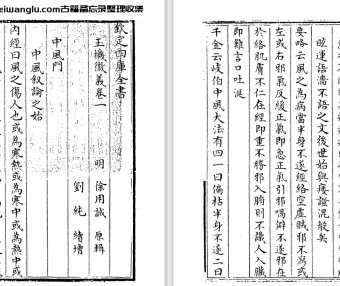 eiwanglu.com古籍备忘录整理收集
欽定四庫全書
玉機微義卷一
明 徐用誠 原輯
劉純 續增
中風門
中風敘論之始
內經曰風之傷人也或為寒熱或為熱中或為寒中或
眩運語濇不語之文後世始與痿證混般矣
要略云風之為病當半身不遂經絡空虛賊邪不瀉或
左或右邪氣反緩正氣即急正氣引邪喎僻不遂邪在
於絡肌膚不仁在經即重不勝邪入腑則不識人入臟
即難言口吐涎
千金云岐伯中風大法有四一曰偏枯半身不遂二曰